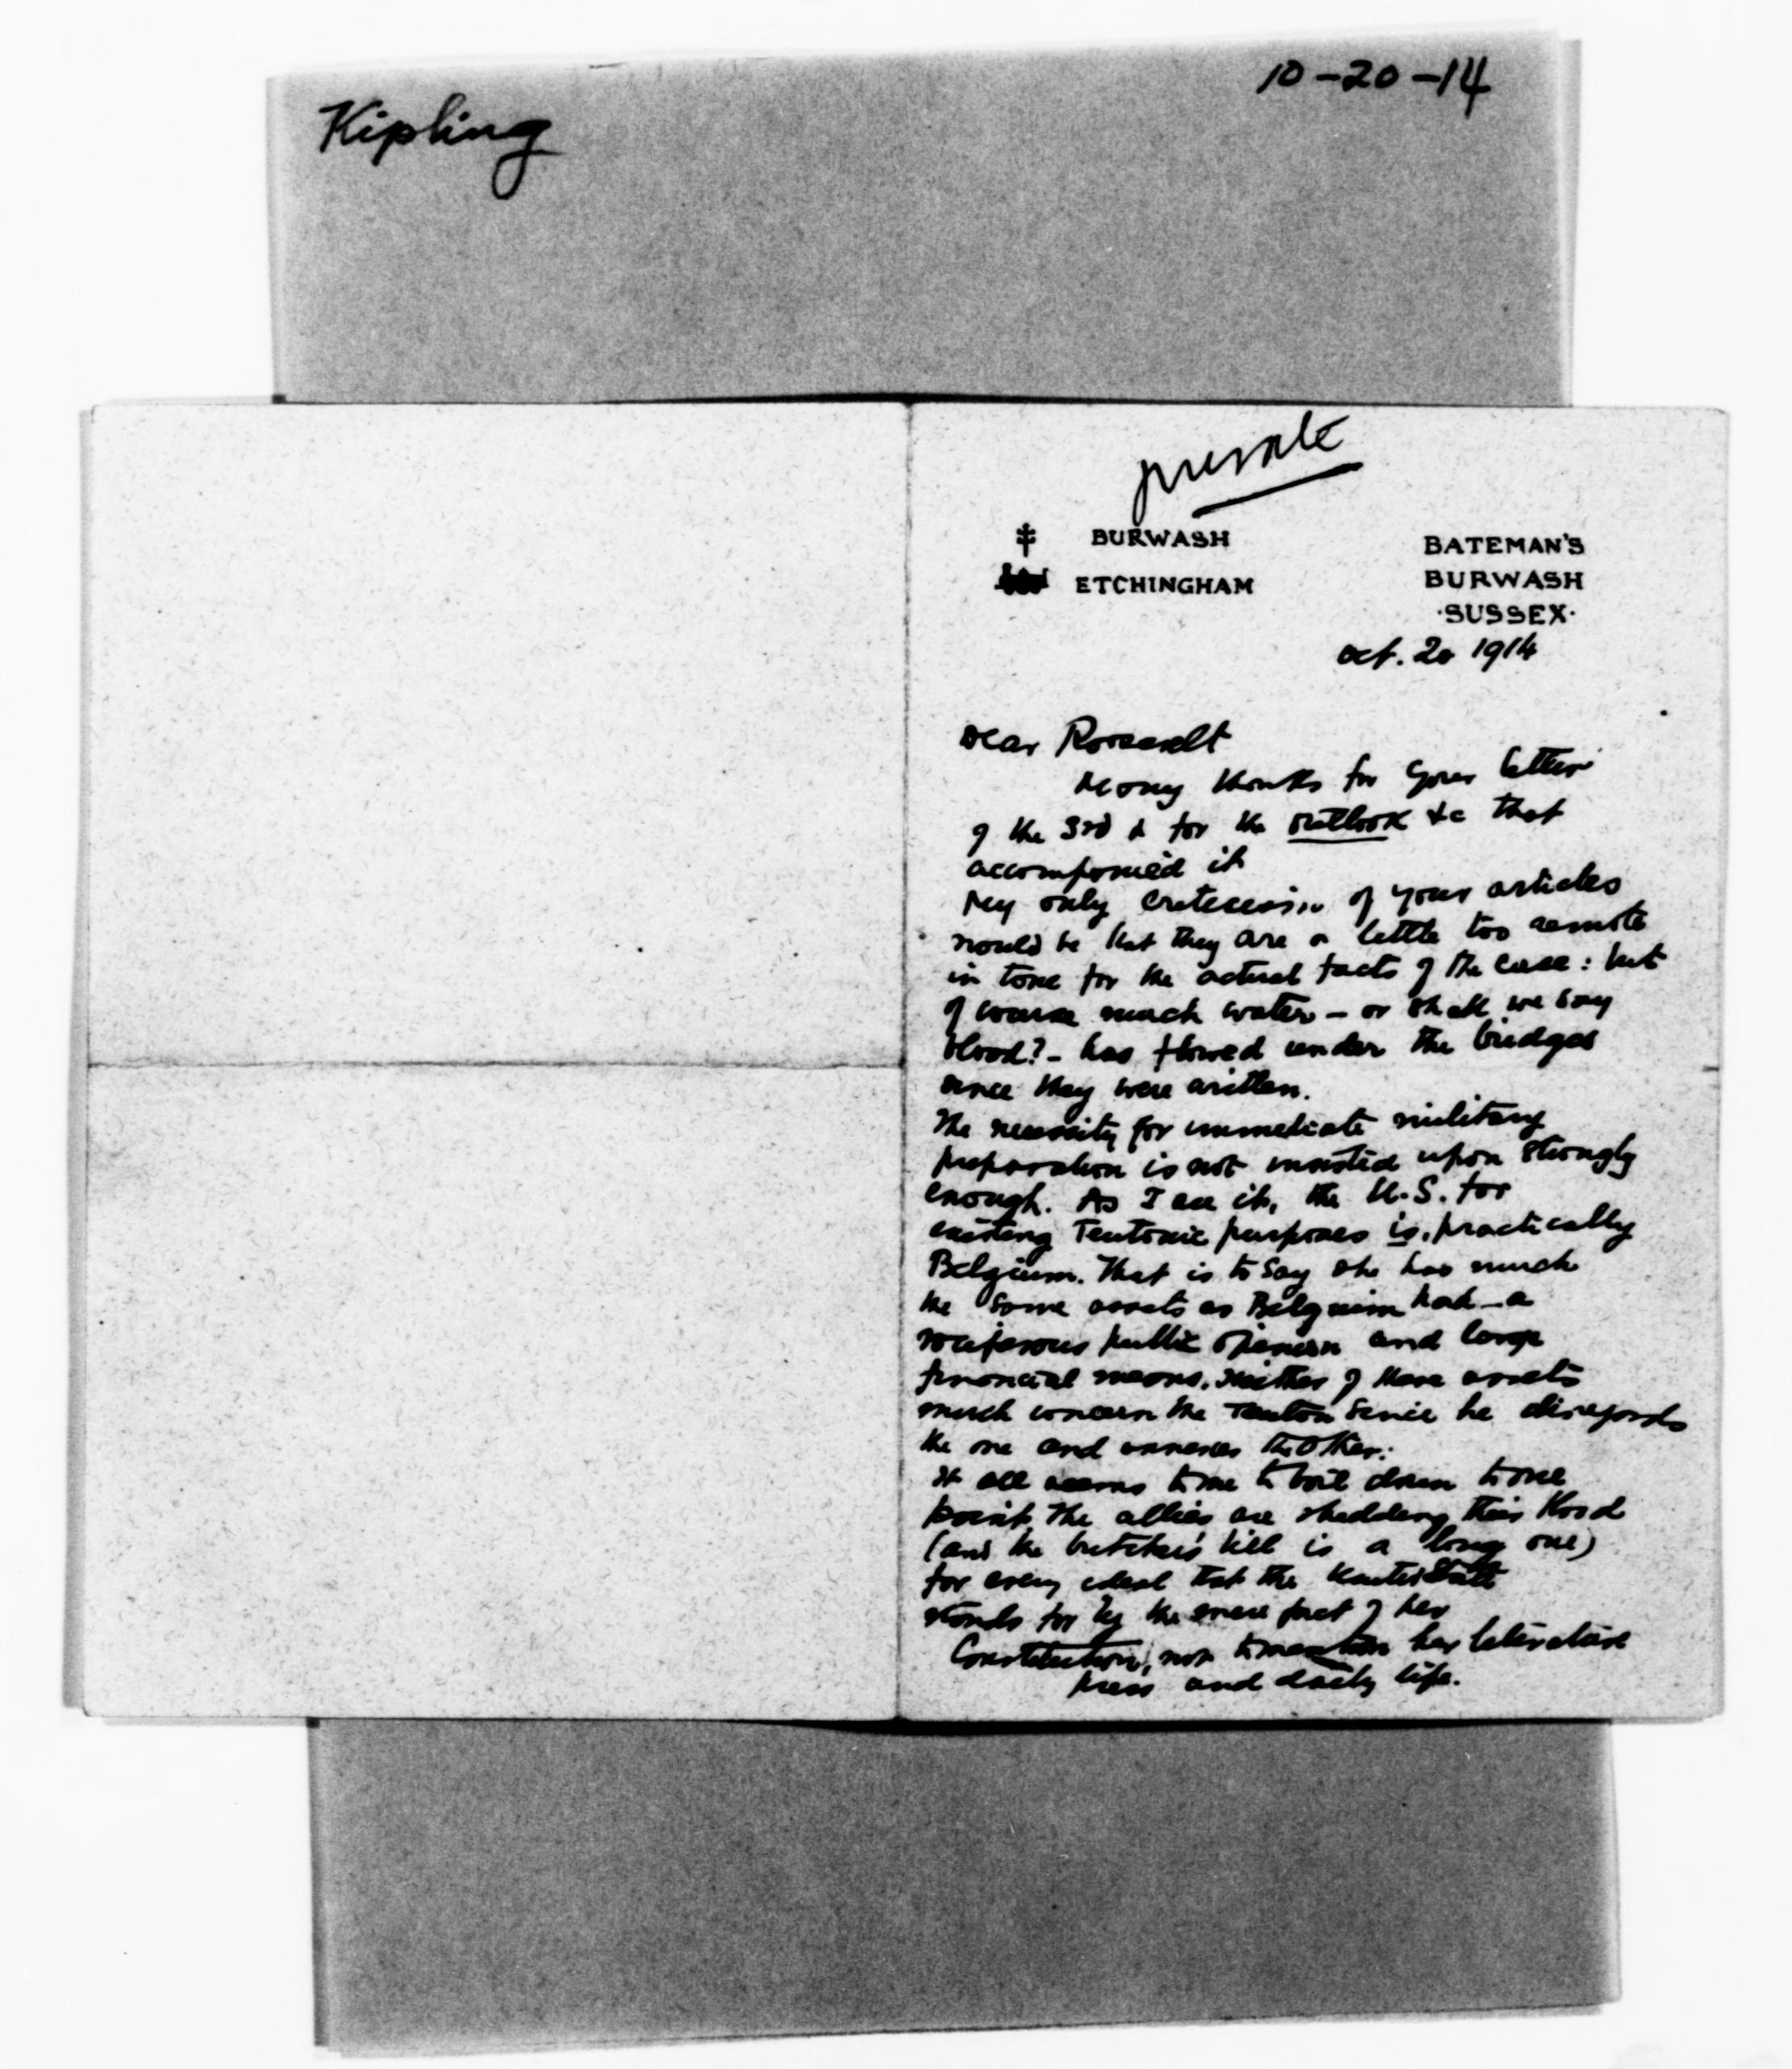 Kipling
10-20-14
private
BURWASH
ETCHINGHAM
BATEMAN'S
BURWASH
·SUSSEX·
Oct. 20 1914
Dear Roosevelt
Many thanks for your letter
of the 3rd & for the Outlook &c that
accompanied it
My only criticism of your articles
would be that they are a little too remote
in tone for the actual facts of the case: but
of course much water - or shall we say
blood? - has flowed under the bridges
since they were written.
The necessity for immediate military
preparation is not insisted upon strongly
enough. As I see it, the U.S. for
existing Teutonic purposes is, practically
Belgium. That is to say she has much
the same assets as Belgium had - a
vociferous public opinion and large
financial means. Neither of these assets
much concern the Teuton since he disregards
the one and annexes the other.
It all seems to me to boil down to one
point The allies are shedding their blood
(and the butcher's bill is a long one)
for every ideal that the United States
stands for by the mere fact of her
Constitution, not to mention her literature
press and daily life.